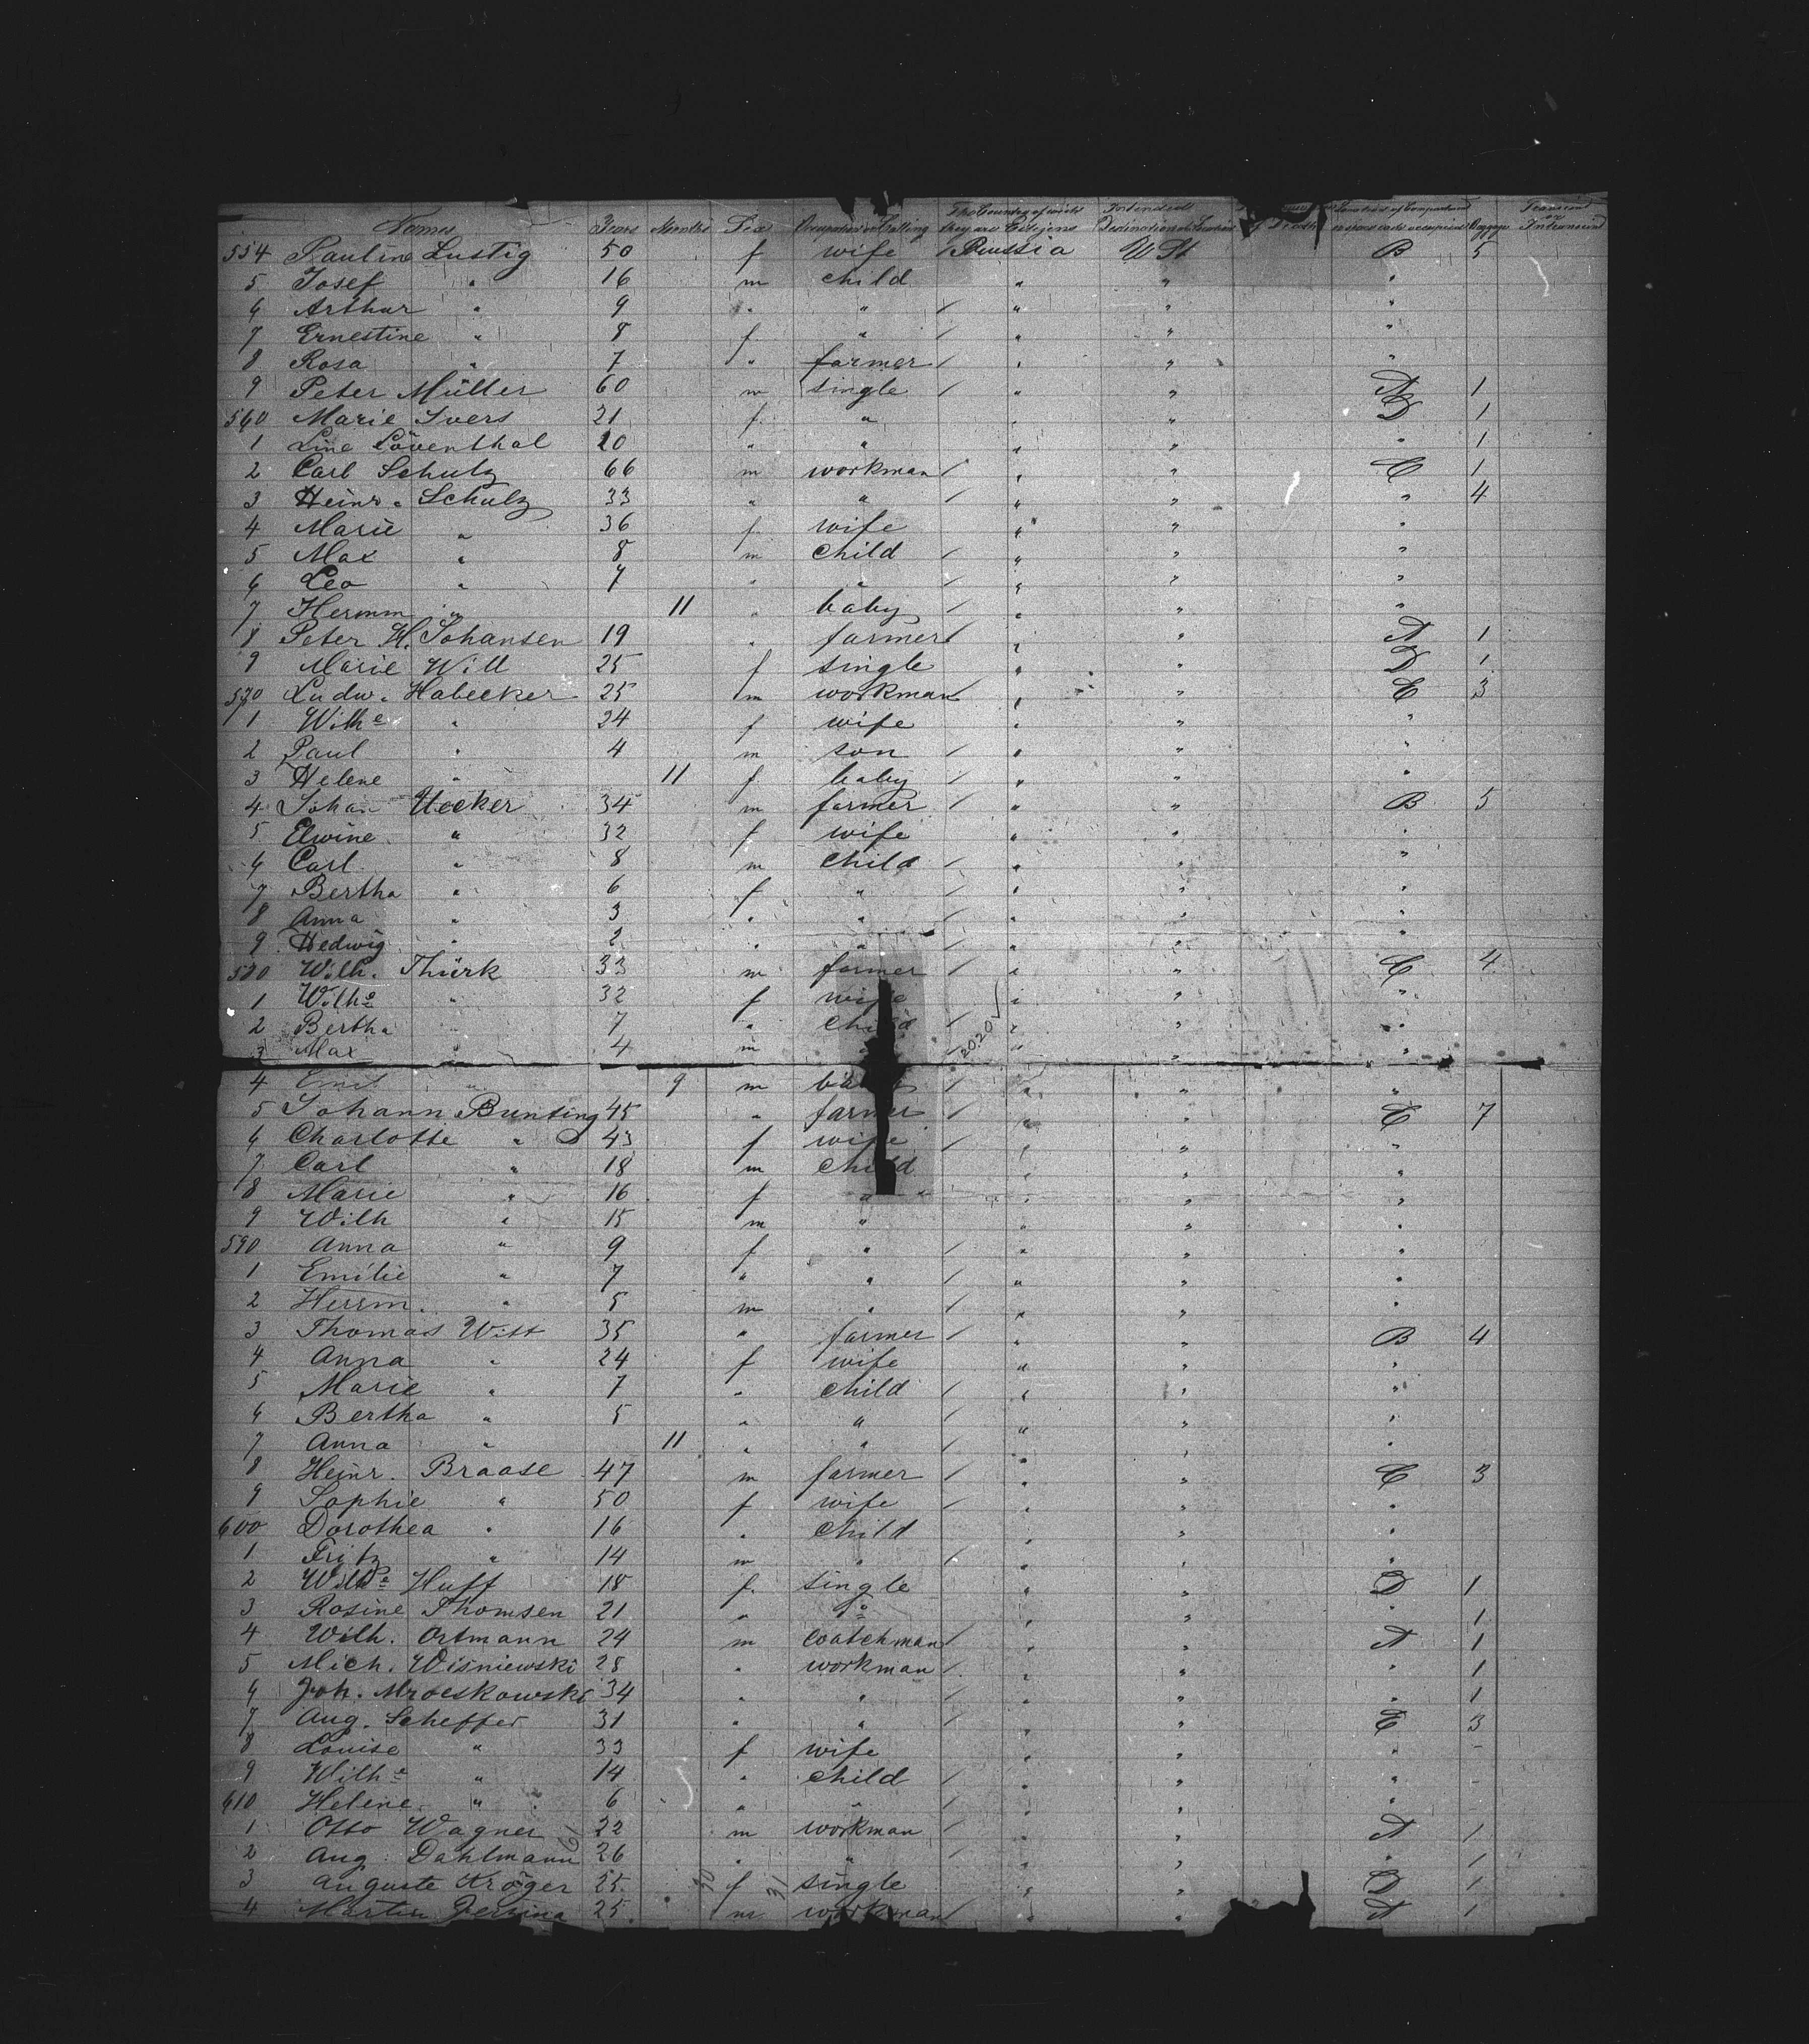 Names Years Months Sex Occupation or Calling The Country of wich they are Citizens Intended Destination or Location Death occupied Baggage Transient or Intransient
554 Pauline Lustig 50 f wife Prussia U St B 5
5 Josef " 16 m child " " "
6 Arthur " 9 " " / " " "
7 Ernestine " 8 f " / " " "
8 Rosa " 7 " farmer / " " "
9 Peter Müller 60 m single / " " A 1
560 Marie Ivers 21 f " " " D 1
1 Line Löventhal 20 " " " " " 1
2 Carl Schulz 66 m workman / " " C 1
3 Heinr. Schulz 33 " " / " " " 4
4 Marie " 36 f wife " " "
5 Max " 8 m child / " " "
6 Leo " 7 " " / " " "
7 Hermm " 11 " baby / " " "
8 Peter H. Johansen 19 " farmer / " " A 1
9 Marie Will 25 f single " " D 1
570 Ludw. Habecker 25 m workman / " " C 3
1 Wilhe " 24 f wife " " "
2 Paul " 4 m son / " " "
3 Helene " 11 f baby / " " "
4 Johan Uecker 34 m farmer / " " B 5
5 Elwine " 32 f wife " " "
6 Carl " 8 m child / " " "
7 Bertha " 6 f " / " " "
8 Anna " 3 " " / " " "
9 Hedwig " 2 " " / " " "
580 Wilh. Thürk 33 m farmer / " " C 4
1 Wilhe " 32 f wife " " "
2 Bertha " 7 " child / " " "
3 Max " 4 m / 2020 ✓ " " "
4 Emil " 9 m / " " "
5 Johann Bunting 45 " farmer / " " C 7
6 Charlotte " 43 f wife / " " "
7 Carl " 18 m child " " "
8 Marie " 16 f " " " "
9 Wilh " 15 m " " " "
590 Anna " 9 f " / " " "
1 Emilie " 7 " " / " " "
2 Herrm. " 5 m " / " " "
3 Thomas Witt 35 " farmer / " " B 4
4 Anna " 24 f wife " " "
5 Marie " 7 " child / " " "
6 Bertha " 5 " " / " " "
7 Anna " 11 " " / " " "
8 Heinr. Braase 47 m farmer / " " C 3
9 Sophie " 50 f wife / " " "
600 Dorothea " 16 " child " " "
1 Fritz " 14 m " / " " "
2 Wilhe Huff 18 f single " " D 1
3 Rosine Thomsen 21 " do " " " 1
4 Wilh. Ortmann 24 m coatchman / " " A 1
5 Mich. Wisniewski 28 " workman / " " " 1
6 Joh. 34 " " / " " " 1
7 Aug. Scheffer 31 " " / " " C 3
8 Louise " 33 f wife " " "
9 Wilhe " 14 " child / " " "
610 Helene " 6 " " / " " "
1 Otto Wagner 22 m workman / " " A 1
2 Aug. Dahlmann 26 " " / " " " 1
3 Auguste Kröger 25 30 f 31 single " " D 1
4 Martin 25 m workman / " " A 1